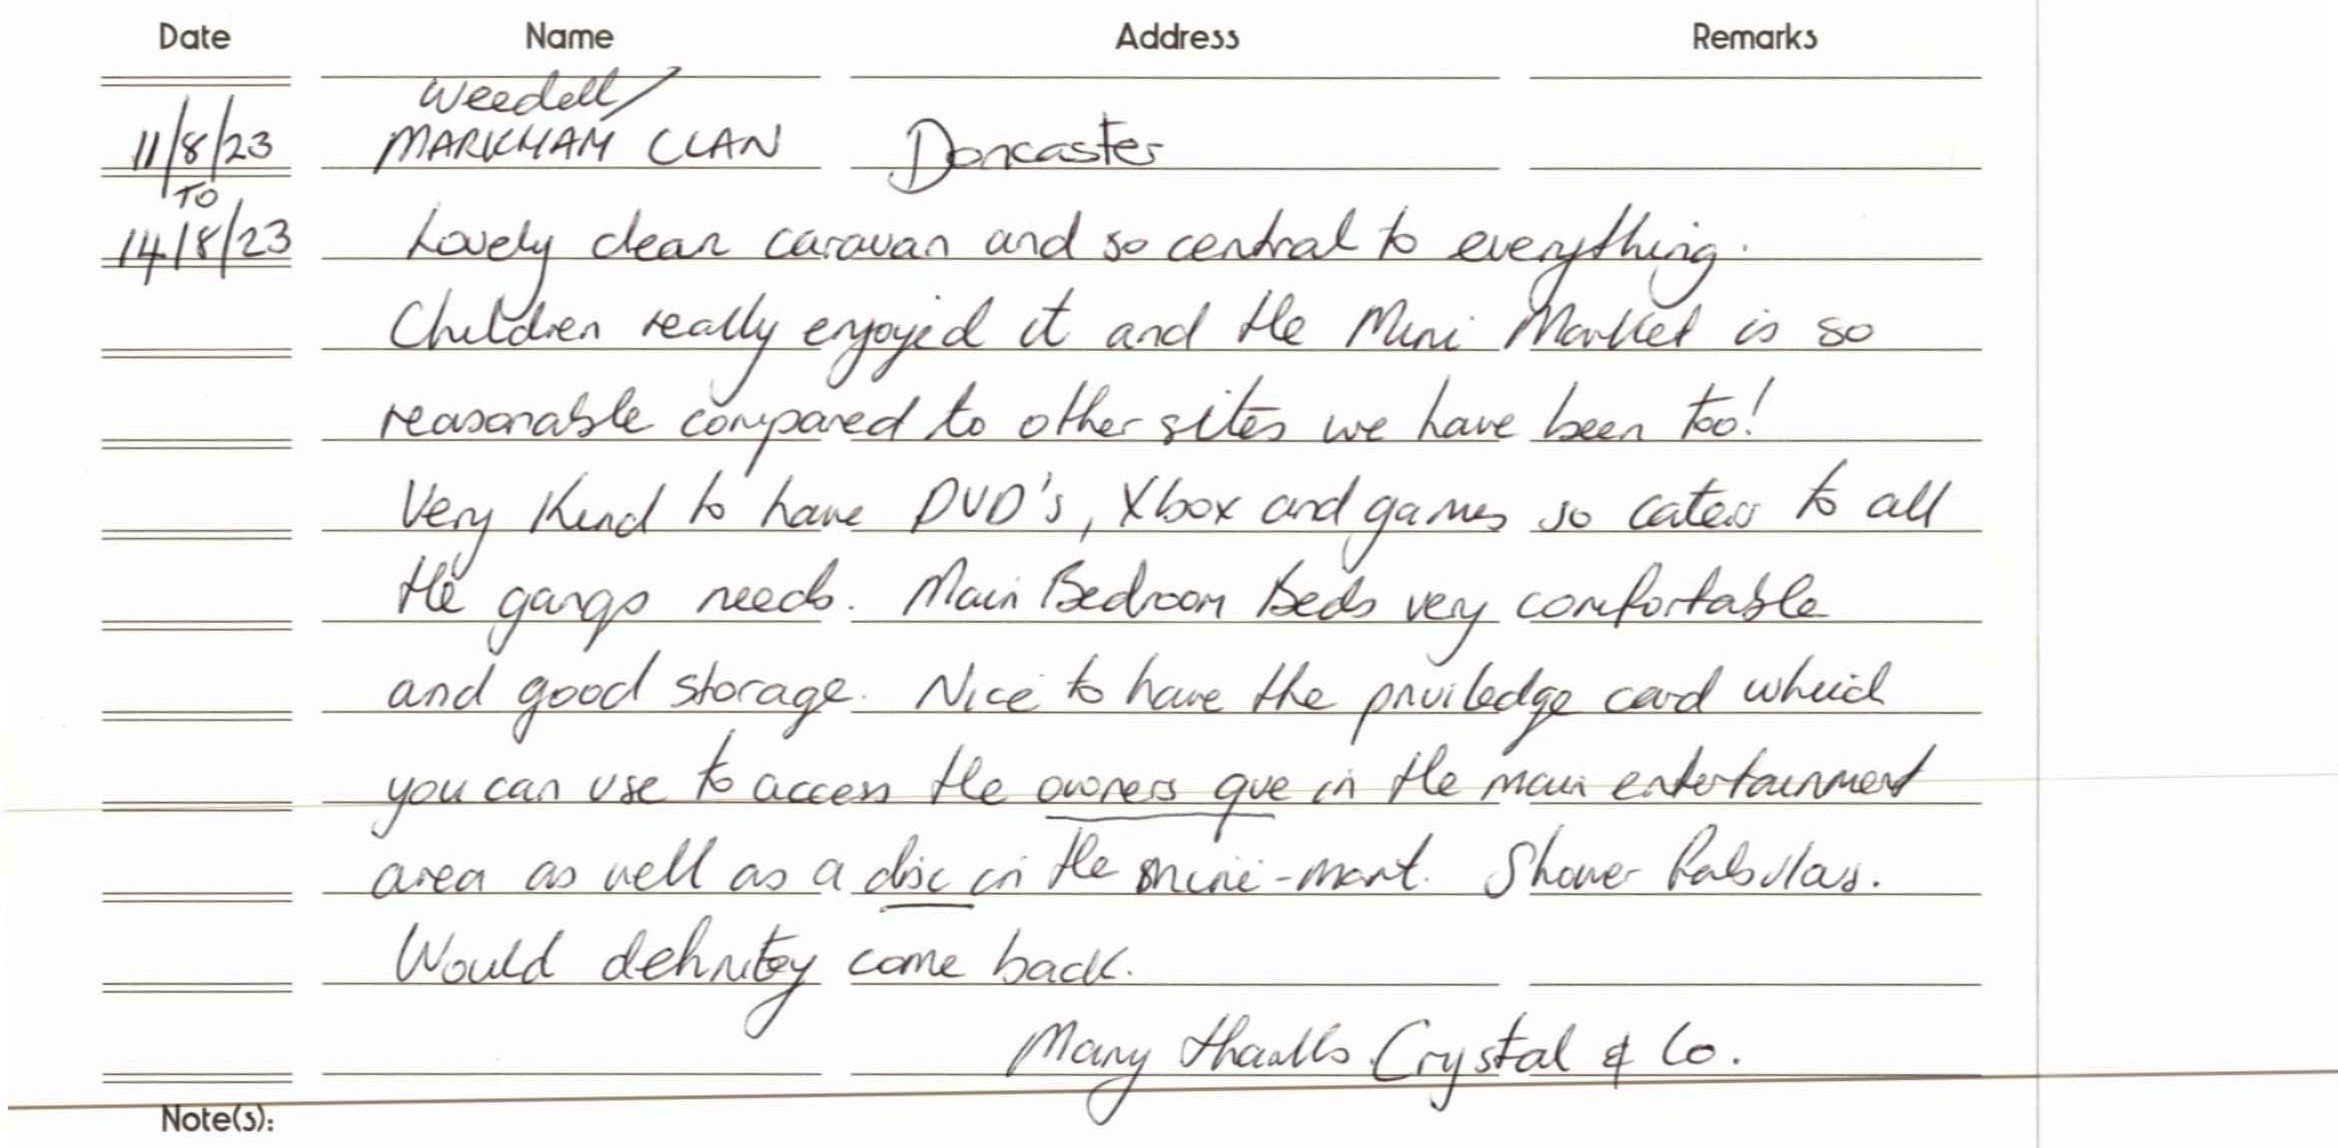 Date Name Address Remarks
Weedall/
11/8/23 MARKHAM CLAN Doncaster
TO
14/8/23 Lovely clean caravan and so central to everything.
Children really enjoyed it and the Mini Market is so
reasonable compared to other sites we have been too!
Very Kind to have DVD's, Xbox and games so caters to all
the gangs needs. Main Bedroom Beds very comfortable
and good storage. Nice to have the priviledge card which
you can use to access the owners que in the main entertainment
area as well as a disc in the mini-mart. Shower fabulous.
Would definitey come back.
Many thanks Crystal & Co.
Note(s):